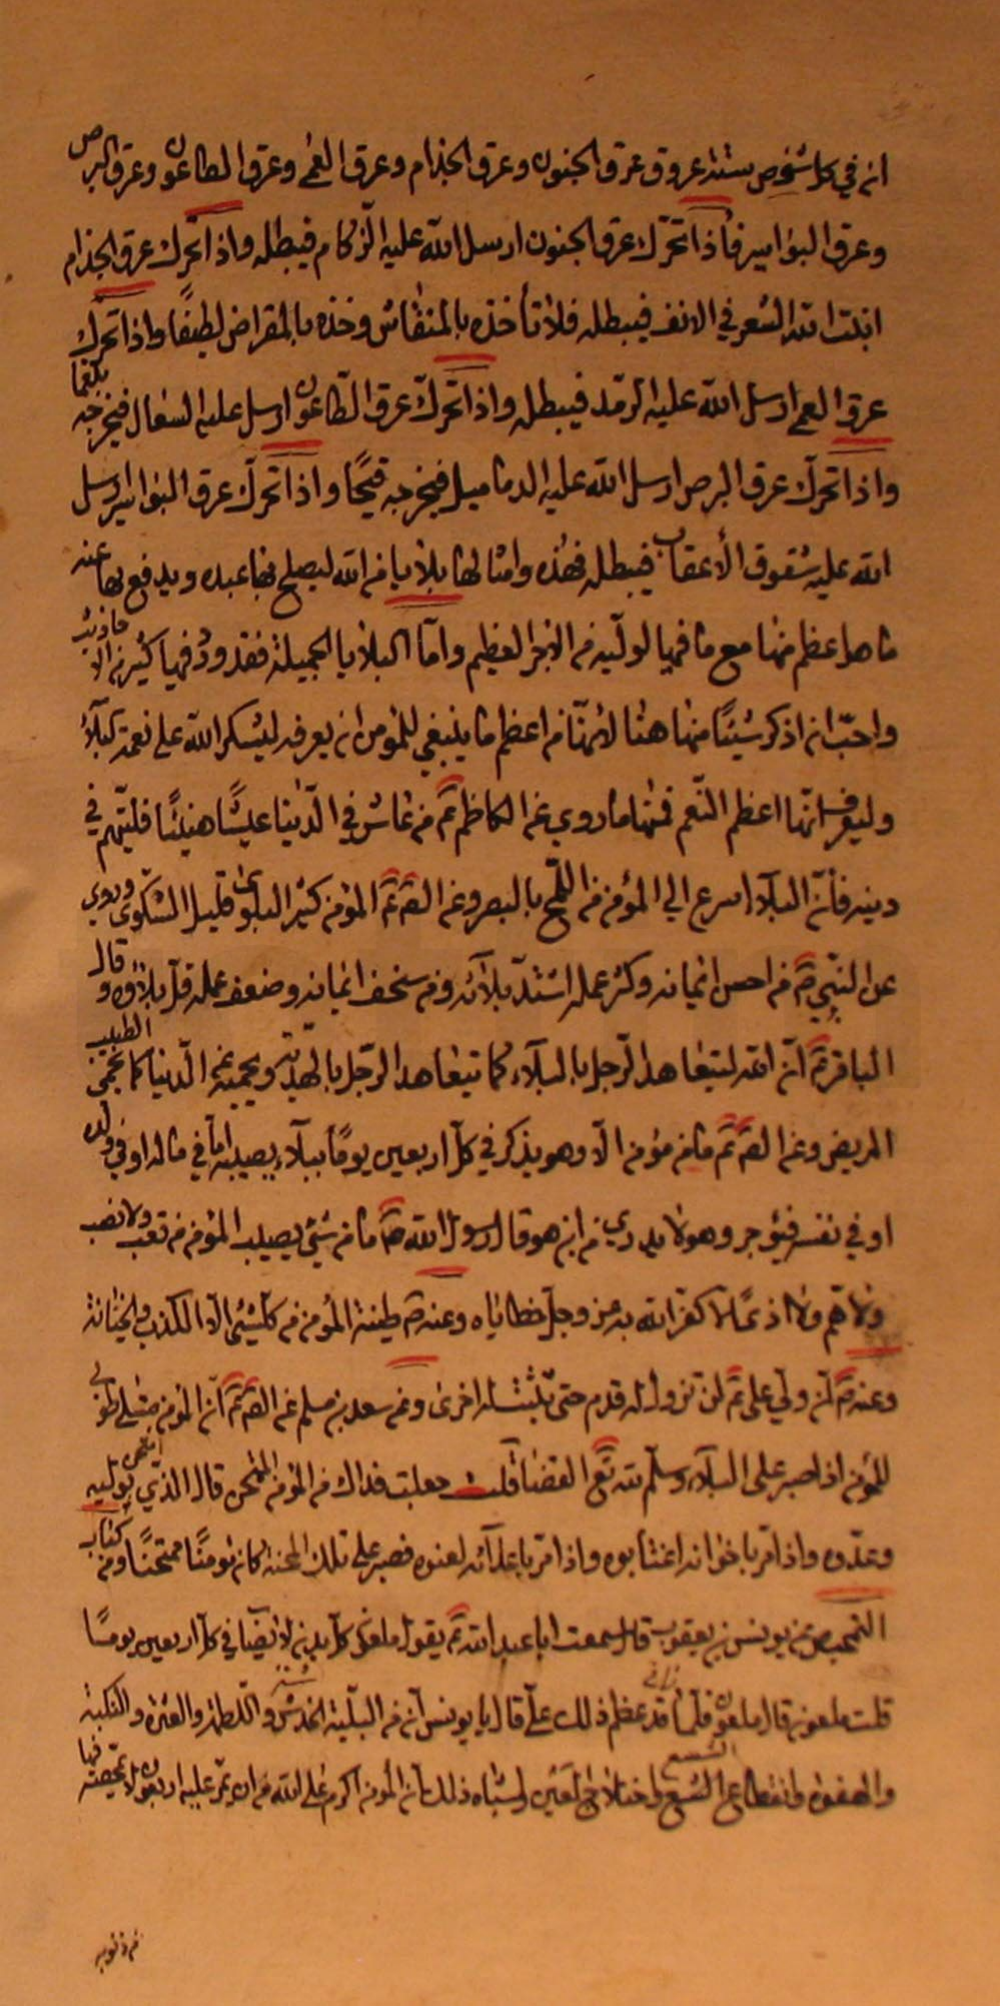 انه في كل شخص ستة عروق عرق الجنون وعرق الجذام وعرق العمى وعرق الطاعون وعرق البرص
وعرق البواسير فاذا تحرّك عرق الجنون ارسل الله عليه الزكام فيبطله واذا تحرك عرق الجذام
انبت الله الشعر في الانف فيبطله فلا تأخذه بالمنقاش وخذه بالمقراض لطيفًا واذا تحرك
عرق العمى ارسل الله عليه الرمد فيبطله واذا تحرّك عرق الطّاعون ارسل عليه السعال فيخرجه بلغما
واذا تحرّك عرق البرص ارسل الله عليه الدماميل فيخرجه قيحًا واذا تحرّك عرق البواسير ارسل
الله عليه شقوق الأعقاب فيبطله فهذه وامثالها بلايا من الله ليصلح بها عبده ويدفع بها عنه
ما هو اعظم منها مع ما فيها لوليّه من الاجر العظيم وامّا البلايا الجميلة فقد ورد فيها كثير من الاحاديث
واحبّ ان اذكر شيئًا منها هنا لانّها من اعظم ما ينبغي للمؤمن ان يعرفه ليشكر الله على نعمة البلاء
وليعرف انّها اعظم النّعم فمنها ما روي عن الكاظم ع من عاش في الدّنيا عيشًا هنيئًا فليتّهم في
دينه فأنّ البلاء اسرع الي المؤمن من اللّمح بالبصر وعن الصّ ع المؤمن كثير البلوى قليل الشكوى وروي
عن النّبي ص من احسن ايمانه وكثر عمله اشتدّ بلاؤه ومن سخف ايمانه وضعف عمله قلّ بلاؤه وقال
الباقر ع انّ الله ليتعاهد الرّجل بالبلاء كما يتعاهد الرّجل بالهديّة ويحميه عن الدّنيا كما يحمي الطبيب
المريض وعن الصّ ع ما من مؤمن الّا وهو يذكر في كلّ اربعين يومًا ببلاء يصيبه امّا في ماله او في ولده
او في نفسه فيؤجر وهو لا يدري من اين هو وقال رسول الله ص ما من شيء يصيب المؤمن من تعب ولا نصب
ولا همّ ولا اذى الّا كفّر الله به عزوجلّ خطاياه وعنه ص طينة المؤمن من كلّ شيء الّا الكذب والخيانة
وعنه ص انّ وليّ علي ع لن تزول له قدم حتى تثبت له اخرى وعن سعد بن مسلم عن الصّ ع انّ المؤمن طوبى
للمؤمن اذا صبر على البلاء وسلّم لله تع القضاء قلت جعلت فداك من المؤمن الممتحن قال الذي امتحن بوليّه
وعدوّه واذا مرّ باخوانه اغتابوه واذا مرّ باعدائه لعنوه فصبر على تلك المحنة كان مؤمنًا ممتحنًا ومن كتاب
التمحيص عن يونس بن يعقوب قال سمعت ابا عبد الله ع يقول ملعون كلّ بدن لا يصاب في كلّ اربعين يومًا
قلت ملعون قال ملعون فلمّا رآني قد عظم ذلك علىّ قال يا يونس انّ من البليّة الخدشة واللّطمة والعثرة والنكبة
والهفوة وانقطاع الشسع واختلاج العين واشباه ذلك انّ المؤمن اكرم على الله من ان يمرّ عليه اربعون لا يمحّصه فيها
من ذنوبه